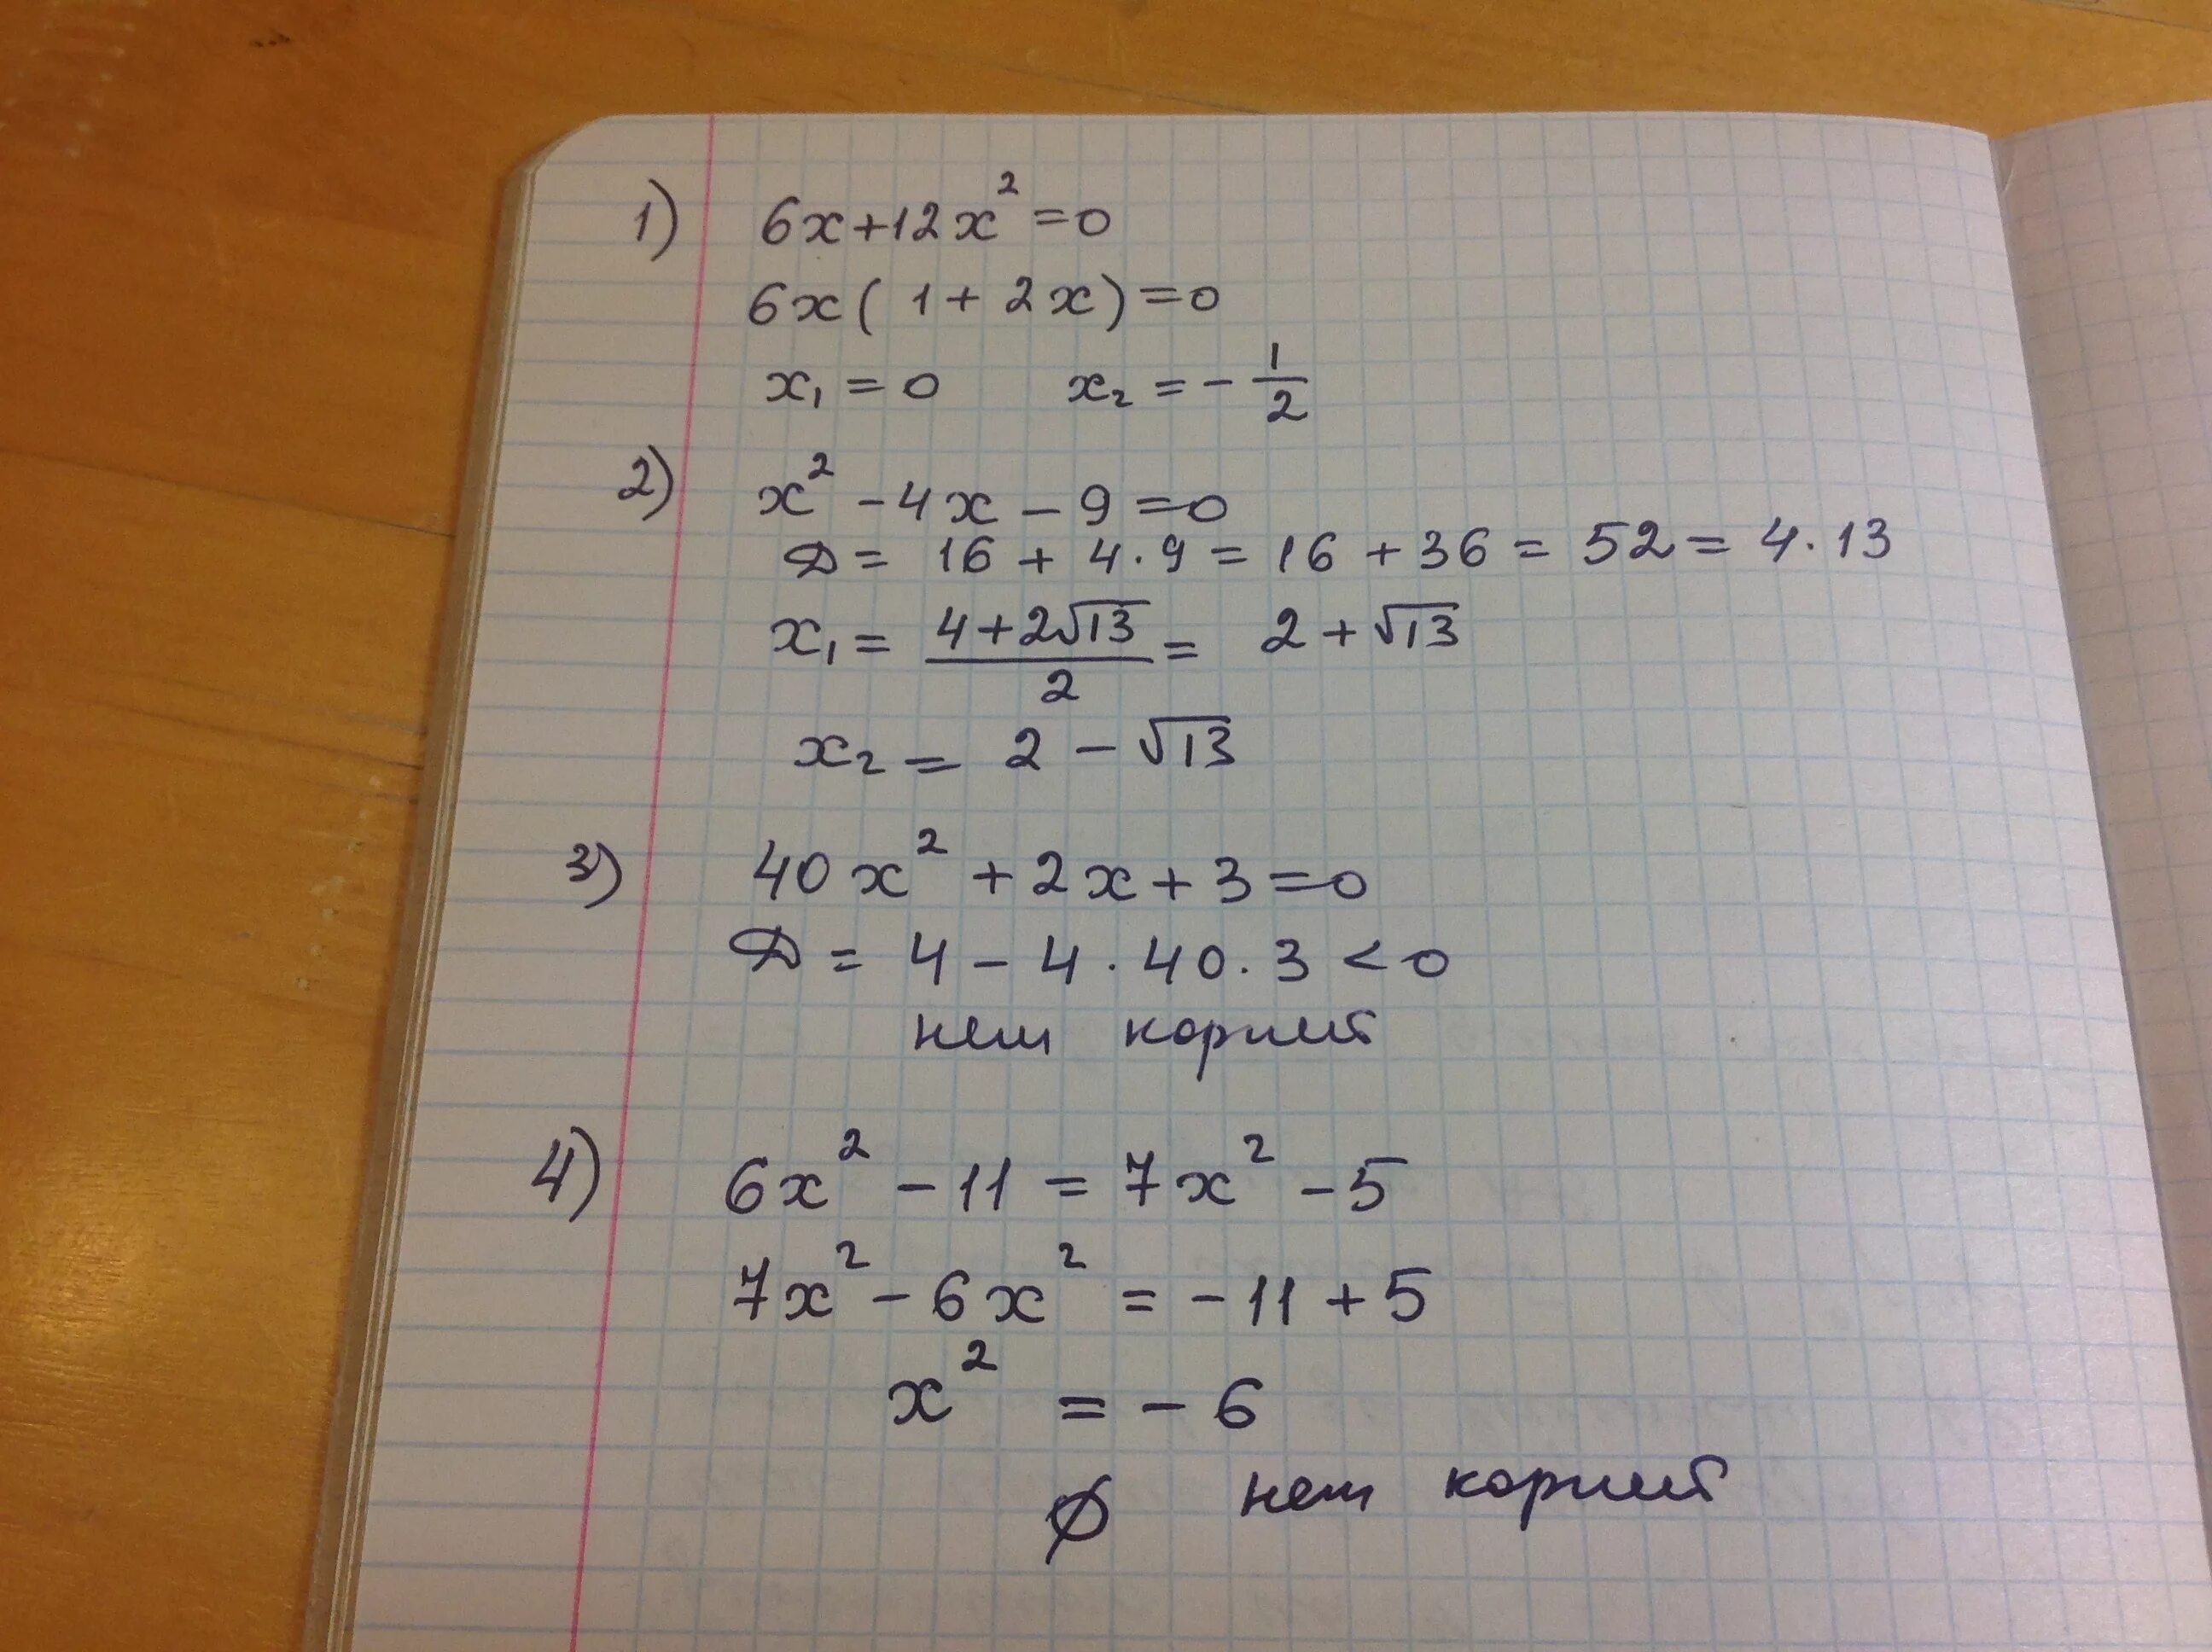 1) 6x+12x²=0
6x(1+2x)=0
x₁=0 x₂=-1/2
2) x²-4x-9=0
D=16+4·9=16+36=52=4·13
x₁=(4+2√13)/2=2+√13
x₂=2-√13
3) 40x²+2x+3=0
D=4-4·40·3<0
нет корней
4) 6x²-11=7x²-5
7x²-6x²=-11+5
x²=-6
∅ нет корней